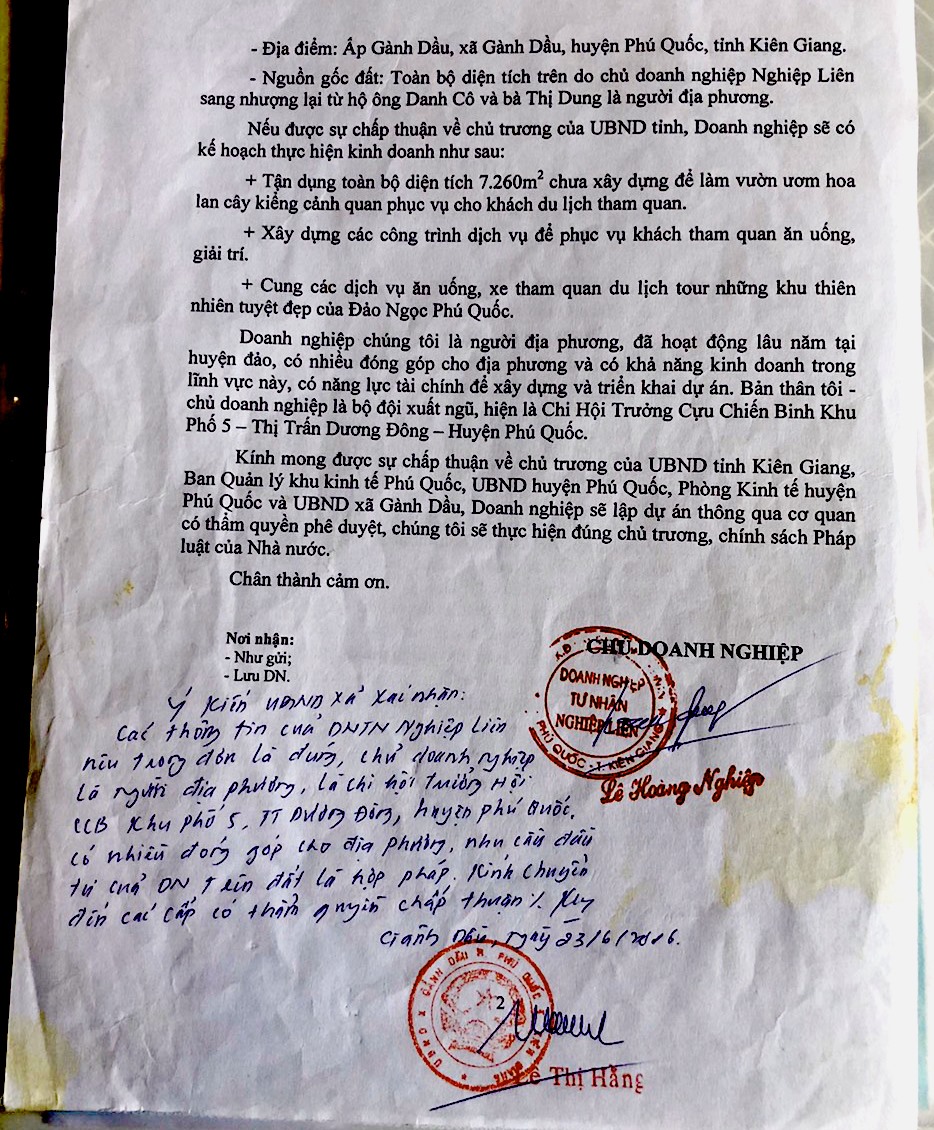 - Địa điểm: Ấp Gành Dầu, xã Gành Dầu, huyện Phú Quốc, tỉnh Kiên Giang.
- Nguồn gốc đất: Toàn bộ diện tích trên do chủ doanh nghiệp Nghiệp Liên
sang nhượng lại từ hộ ông Danh Cô và bà Thị Dung là người địa phương.
Nếu được sự chấp thuận về chủ trương của UBND tỉnh, Doanh nghiệp sẽ có
kế hoạch thực hiện kinh doanh như sau:
+ Tận dụng toàn bộ diện tích 7.260m² chưa xây dựng để làm vườn ươm hoa
lan cây kiểng cảnh quan phục vụ cho khách du lịch tham quan.
+ Xây dựng các công trình dịch vụ để phục vụ khách tham quan ăn uống,
giải trí.
+ Cung các dịch vụ ăn uống, xe tham quan du lịch tour những khu thiên
nhiên tuyệt đẹp của Đảo Ngọc Phú Quốc.
Doanh nghiệp chúng tôi là người địa phương, đã hoạt động lâu năm tại
huyện đảo, có nhiều đóng góp cho địa phương và có khả năng kinh doanh trong
lĩnh vực này, có năng lực tài chính để xây dựng và triển khai dự án. Bản thân tôi -
chủ doanh nghiệp là bộ đội xuất ngũ, hiện là Chi Hội Trưởng Cựu Chiến Binh Khu
Phố 5 – Thị Trấn Dương Đông – Huyện Phú Quốc.
Kính mong được sự chấp thuận về chủ trương của UBND tỉnh Kiên Giang,
Ban Quản lý khu kinh tế Phú Quốc, UBND huyện Phú Quốc, Phòng Kinh tế huyện
Phú Quốc và UBND xã Gành Dầu, Doanh nghiệp sẽ lập dự án thông qua cơ quan
có thẩm quyền phê duyệt, chúng tôi sẽ thực hiện đúng chủ trương, chính sách Pháp
luật của Nhà nước.
Chân thành cảm ơn.
Nơi nhận:
- Như gửi;
- Lưu DN.
CHỦ DOANH NGHIỆP
DOANH NGHIỆP
TƯ NHÂN
NGHIỆP LIÊN
PHÚ QUỐC - T. KIÊN GIANG
Lê Hoàng Nghiệp
Ý kiến UBND xã xác nhận:
Các thông tin của DNTN Nghiệp Liên
nêu trong đơn là đúng, chủ doanh nghiệp
là người địa phương, là chi hội trưởng Hội
CCB khu phố 5, TT Dương Đông, huyện Phú Quốc,
có nhiều đóng góp cho địa phương, nhu cầu đầu
tư của DN trên đất là hợp pháp. Kính chuyển
đến các cấp có thẩm quyền chấp thuận ./.
Gành Dầu, ngày 23/6/2016.
UBND X GÀNH DẦU H. PHÚ QUỐC
2
Lê Thị Hằng